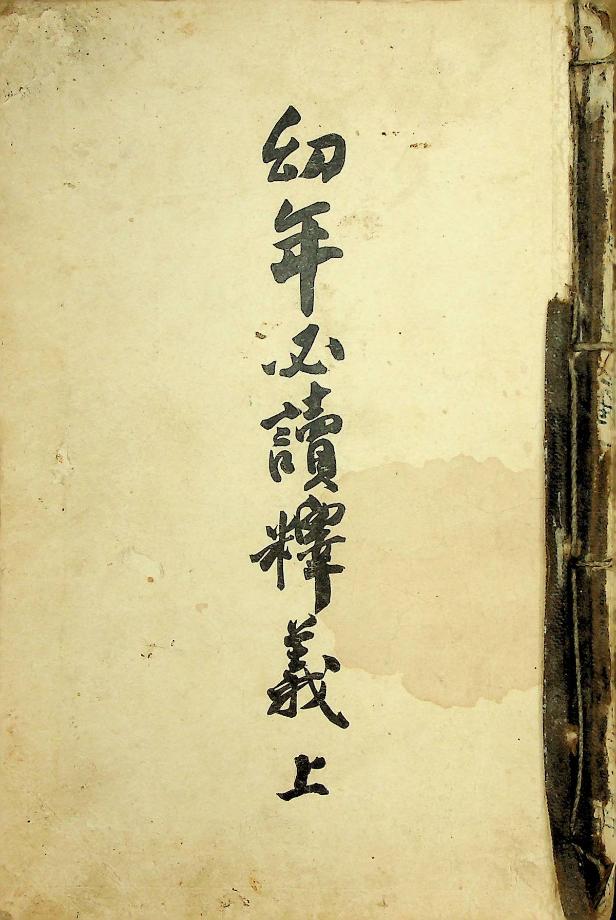 幼年必讀釋義上